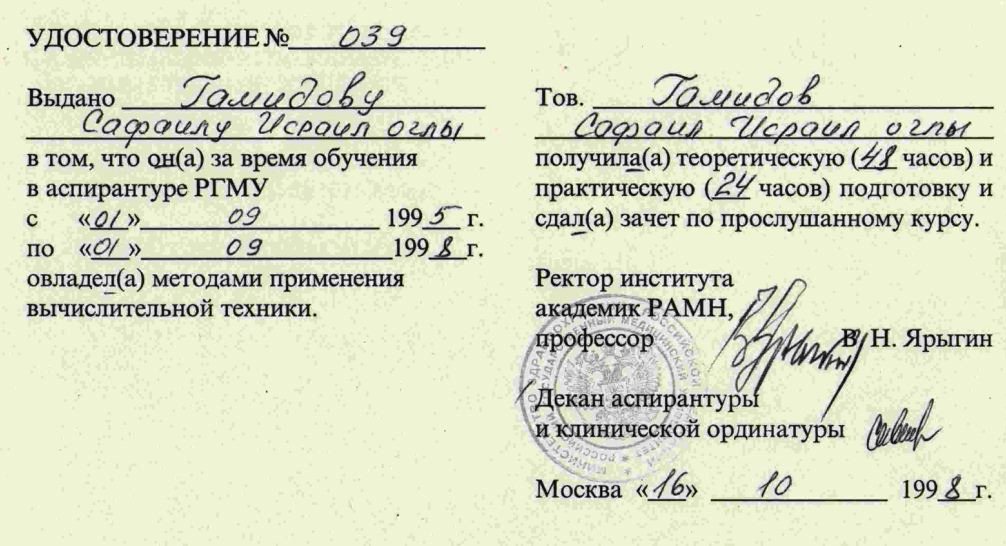 УДОСТОВЕРЕНИЕ № 039
Выдано Гамидову
Сафаилу Исраил оглы
в том, что он(а) за время обучения
в аспирантуре РГМУ
с «01» 09 1995 г.
по «01» 09 1998 г.
овладел(а) методами применения
вычислительной техники.
Тов. Гамидов
Сафаил Исраил оглы
получила(а) теоретическую (48 часов) и
практическую (24 часов) подготовку и
сдал(а) зачет по прослушанному курсу.
Ректор института
академик РАМН,
профессор В. Н. Ярыгин
Декан аспирантуры
и клинической ординатуры
Москва «16» 10 1998 г.